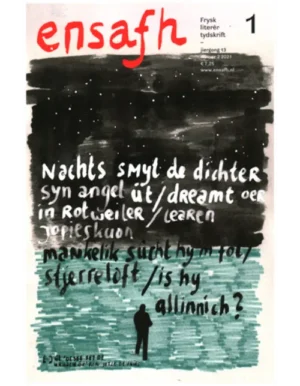 ensafh
Frysk
literêr
tydskrift
1
jiergong 13
www.ensafh.nl
Nachts smyt de dichter
syn angel út/dreamt oer
in Rotweiler/learen
jopieskuon
mankelik sucht hy in fol/
stjerreloft/is hy
allinnich?